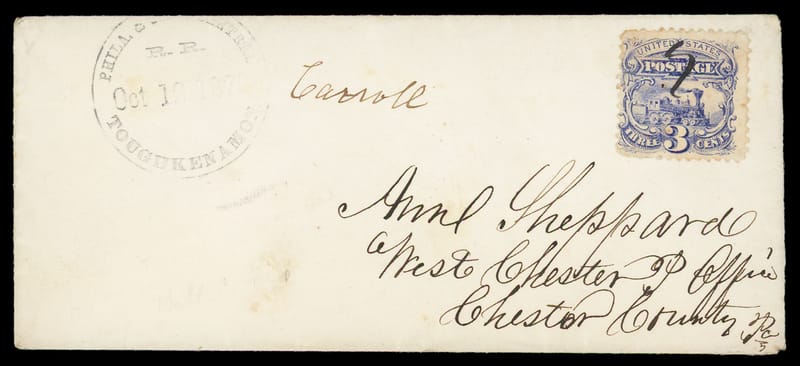 PHILA. & CENTRAL
R. R.
Oct 12 187
TOUGHKENAMON
Carroll
UNITED STATES
POSTAGE
THREE 3 CENTS
Ann Sheppard
West Chester P Office
Chester County Pa